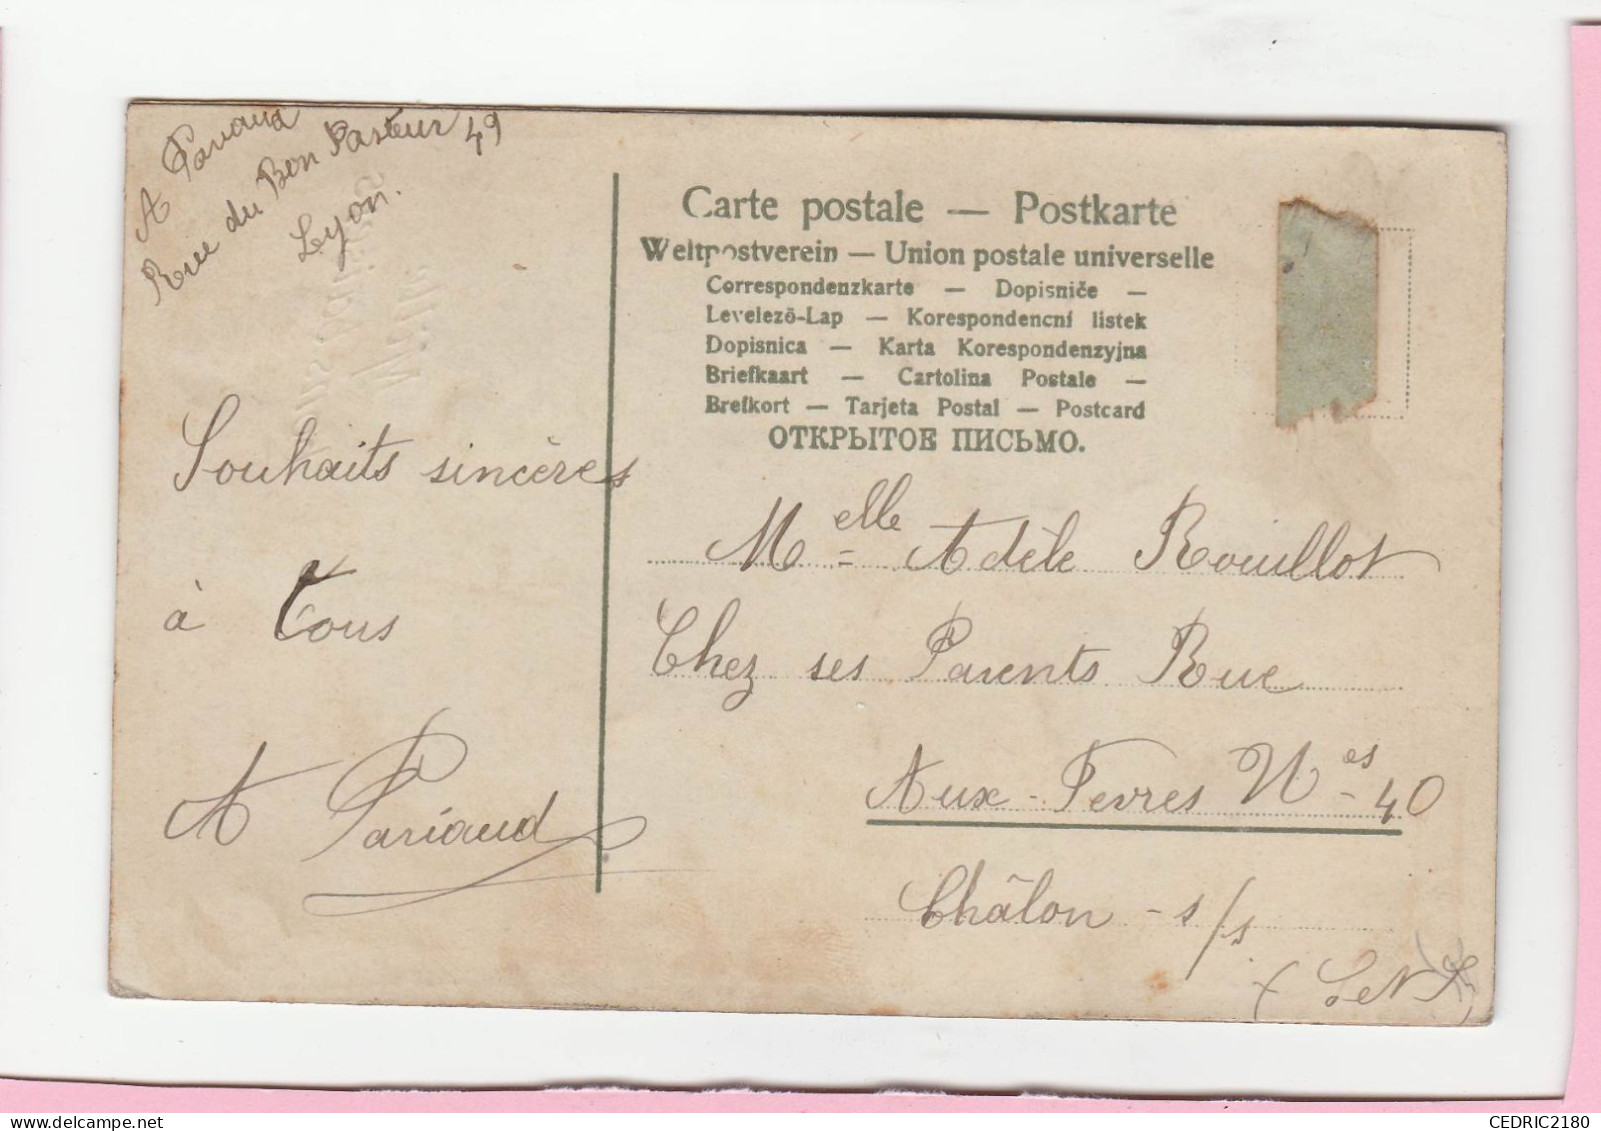 A Pariaud
Rue du Bon Pasteur 49
Lyon.
Souhaits sincères
à tous
A Pariaud
Carte postale — Postkarte
Weltpostverein — Union postale universelle
Correspondenzkarte — Dopisniče —
Levelezö-Lap — Korespondencní listek
Dopisnica — Karta Korespondenzyjna
Briefkaart — Cartolina Postale —
Brefkort — Tarjeta Postal — Postcard
ОТКРЫТОЕ ПИСЬМО.
Melle Adèle Rouillot
Chez ses Parents Rue
Aux-Fevres Nes-40
Châlon-s/s
CEDRIC2180